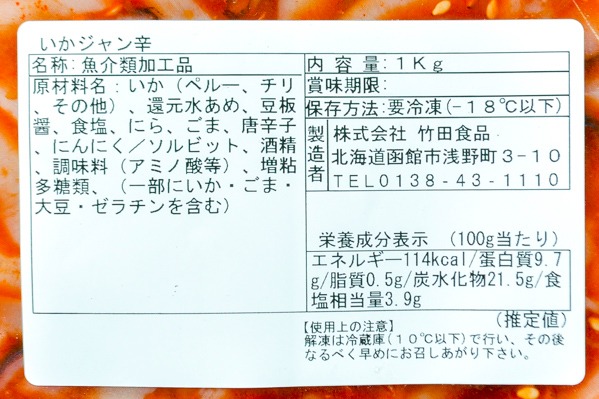 いかジャン辛
名称:魚介類加工品
原材料名:いか(ペルー、チリ
、その他)、還元水あめ、豆板
醤、食塩、にら、ごま、唐辛子
、にんにく/ソルビット、酒精
、調味料(アミノ酸等)、増粘
多糖類、(一部にいか・ごま・
大豆・ゼラチンを含む)
内容量:1Kg
賞味期限:
保存方法:要冷凍(-18℃以下)
製造者
株式会社 竹田食品
北海道函館市浅野町3-10
TEL0138-43-1110
栄養成分表示 (100g当たり)
エネルギー114kcal/蛋白質9.7
g/脂質0.5g/炭水化物21.5g/食
塩相当量3.9g
(推定値)
【使用上の注意】
解凍は冷蔵庫(10℃以下)で行い、その後
なるべく早めにお召しあがり下さい。